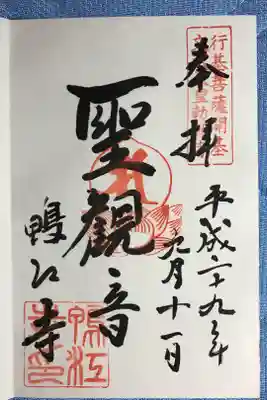 奉拝
行基菩薩開基
平成二十九年
九月十一日
聖観音
鴨江寺
鴨江
寺印